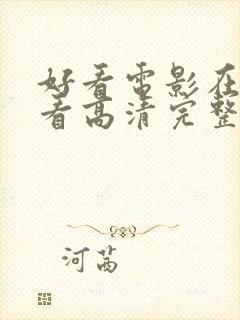 好看电影在
看高清完整
河茜